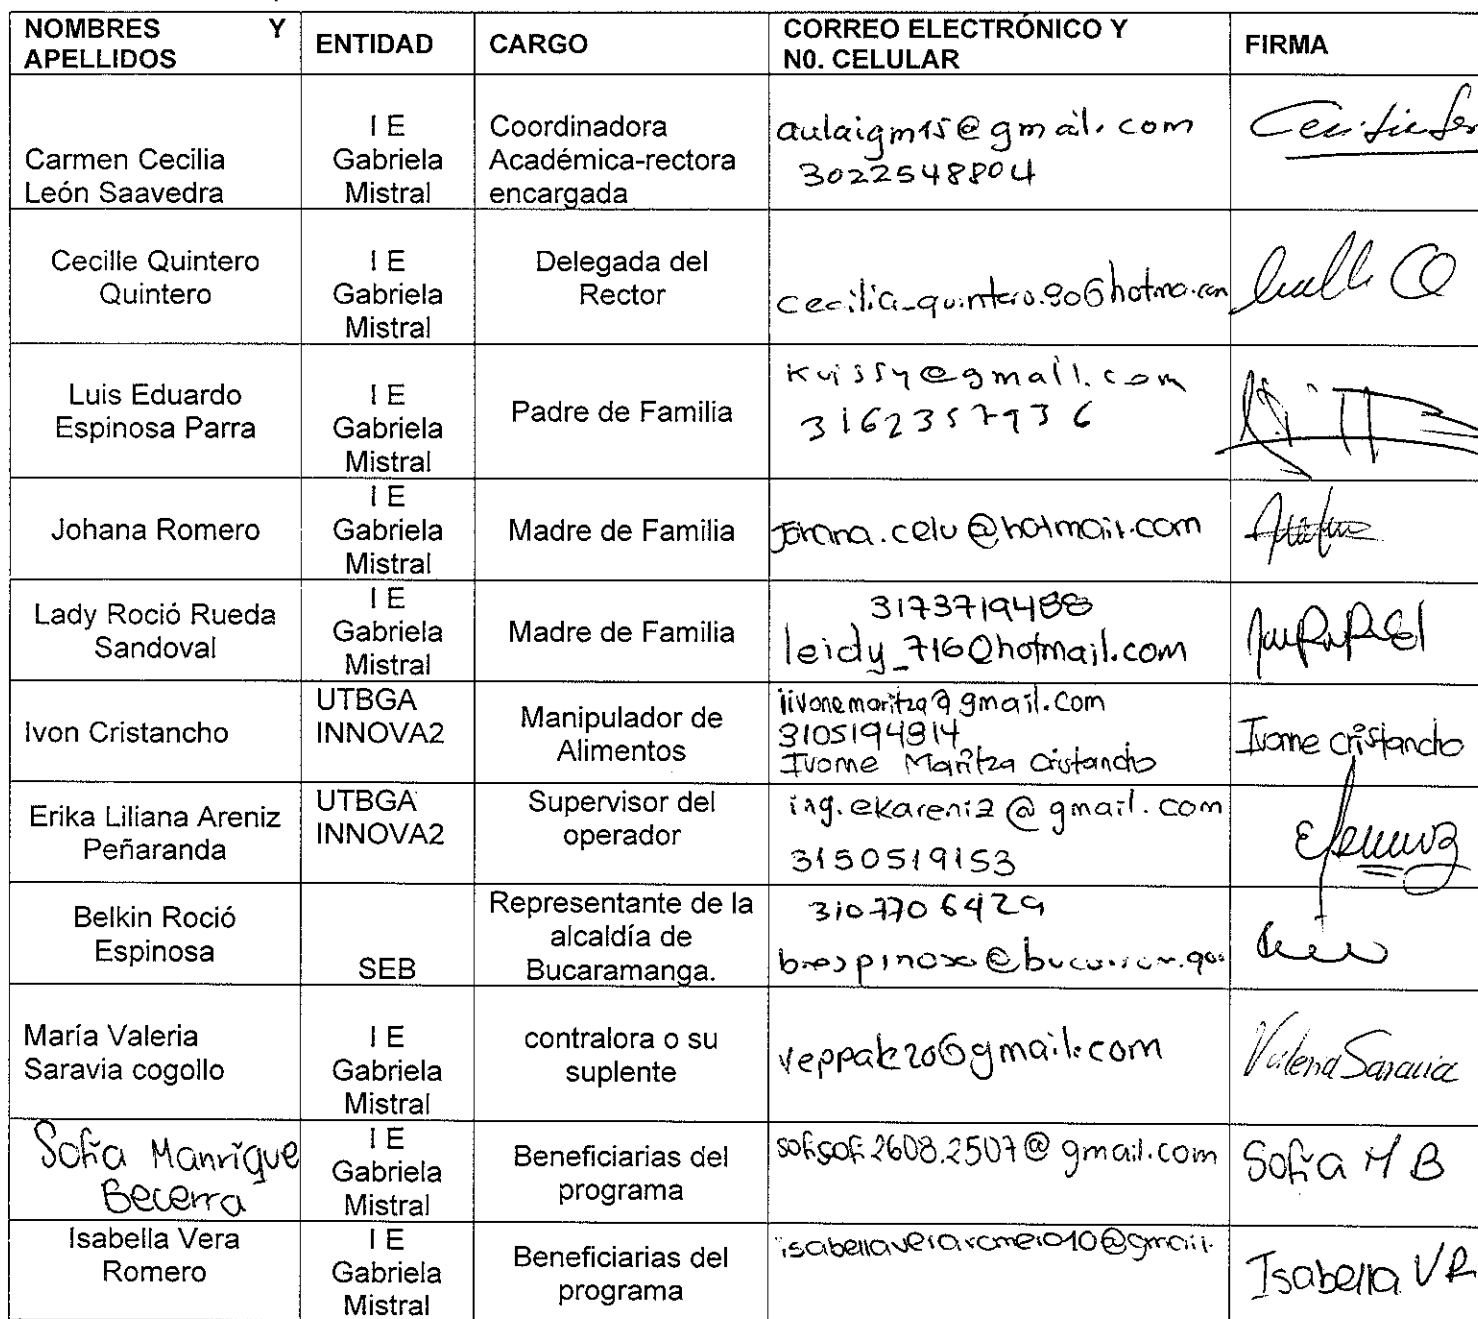 NOMBRES Y
APELLIDOS
ENTIDAD
CARGO
CORREO ELECTRÓNICO Y
N0. CELULAR
FIRMA
Carmen Cecilia
León Saavedra
I E
Gabriela
Mistral
Coordinadora
Académica-rectora
encargada
aulaigm15@gmail.com
3022548804
Cecille Quintero
Quintero
I E
Gabriela
Mistral
Delegada del
Rector
Luis Eduardo
Espinosa Parra
I E
Gabriela
Mistral
Padre de Familia
kuissy@gmail.com
3162357936
Johana Romero
I E
Gabriela
Mistral
Madre de Familia
Johana.celu@hotmail.com
Lady Roció Rueda
Sandoval
I E
Gabriela
Mistral
Madre de Familia
3173719488
leidy_716@hotmail.com
Ivon Cristancho
UTBGA
INNOVA2
Manipulador de
Alimentos
iivonemaritza@gmail.com
3105194914
Ivonne Maritza Cristancho
Ivonne Cristancho
Erika Liliana Areniz
Peñaranda
UTBGA
INNOVA2
Supervisor del
operador
ing.ekareniz@gmail.com
3150519153
Belkin Roció
Espinosa
SEB
Representante de la
alcaldía de
Bucaramanga.
3107706429
María Valeria
Saravia cogollo
I E
Gabriela
Mistral
contralora o su
suplente
veppak20@gmail.com
Valeria Saravia
Sofia Manrique
Becerra
I E
Gabriela
Mistral
Beneficiarias del
programa
sofisofi.2608.2507@gmail.com
Sofia M B
Isabella Vera
Romero
I E
Gabriela
Mistral
Beneficiarias del
programa
isabellaveraromero10@gmail.
Isabella VR